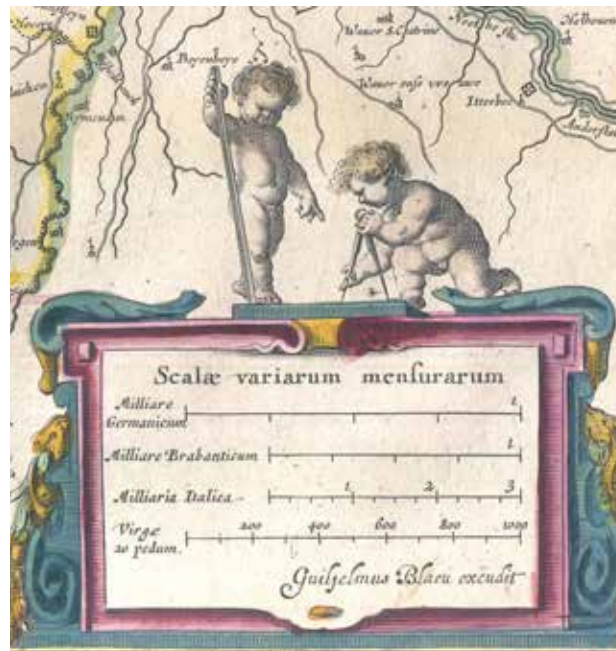 Boyenboye
Wauer S. Catrine
Itterbec
Scalæ variarum menſurarum
Milliare
Germanicum
1.
Milliare Brabanticum
1.
Milliaria Italica
1.
2.
3
Virgæ
20 pedum.
200
400
600
800
1000
Guiljelmus Blaeu excudit